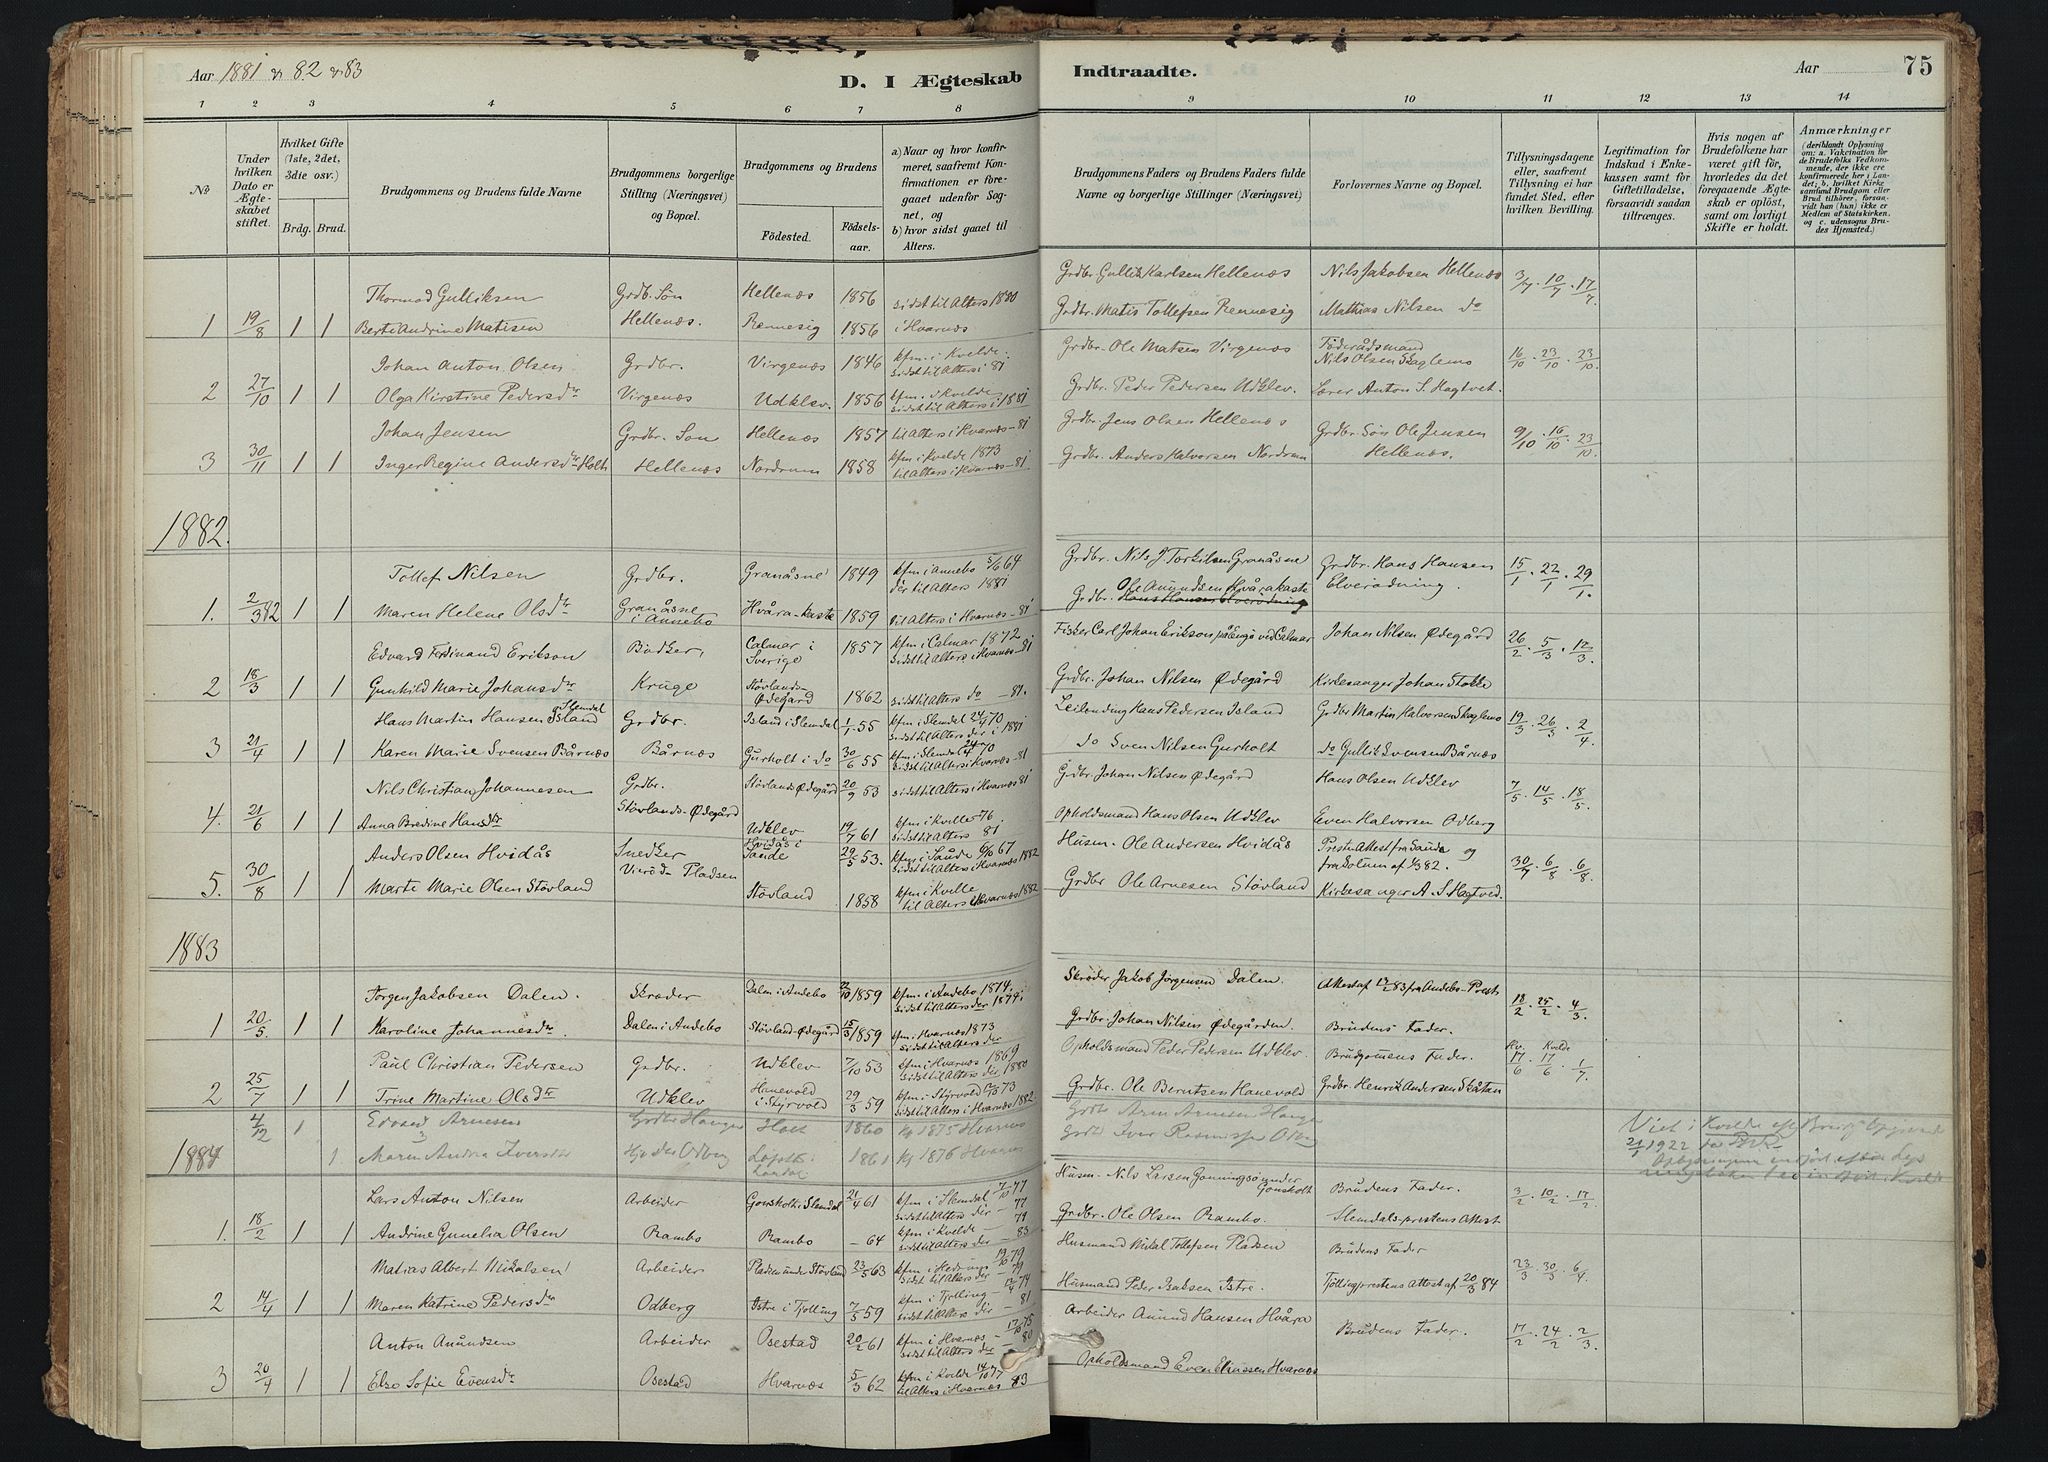 Aar 1881 & 82 & 83
D. I Ægteskab Indtraadte.
Aar 75
1 2 3 4 5 6 7 8 9 10 11 12 13 14
No
Under hvilken Dato er Ægteskabet stiftet.
Hvilket Gifte (1ste, 2det, 3die osv.)
Brdg. Brud.
Brudgommens og Brudens fulde Navne
Brudgommens borgerlige Stillng (Næringsvei) og Bopæl.
Brudgommens og Brudens
Fødested. Fødselsaar.
a) Naar og hvor konfirmeret, saafremt Konfirmationen er foregaaet udenfor Sognet, og
b) hvor sidst gaaet til Alters.
Brudgommens Faders og Brudens Faders fulde Navne og borgerlige Stillinger (Næringsvei)
Forlovernes Navne og Bopæl.
Tillysningsdagene eller, saafremt Tillysning ei har fundet Sted, efter hvilken Bevilling.
Legitimation for Indskud i Enkekassen samt for Giftetilladelse, forsaavidt saadan tiltrænges.
Hvis nogen af Brudefolkene har været gift før, hvorledes da det foregaaende Ægteskab er opløst, samt om lovligt Skifte er holdt.
Anmærkninger (deriblandt Oplysning om: a. Vakcination for de Brudefolks Vedkommende, der ikke er konfirmerede her i Landet; b. hvilket Kirkesamfund Brudgom eller Brud tilhører, forsaavidt han (hun) ikke er Medlem af Statskirken, og c. udensogns Brudes Hjemsted.)
Thormod Gulliksen Grdb. Søn Hellenæs 1856 sidst til Alters 1880 Grdbr. Gullik Karlsen Hellenæs Nils Jakobsen Hellenæs 3/7 · 10/7 · 17/7.
1 19/8 1 1 Berte Andrine Matisen Hellenæs. Rennesig 1856 i Hvarnæs Grdbr. Matis Tollefsen Rennesig Mathias Nilsen do
Johan Anton Olsen Grdbr. Virgenæs 1846 kfm. i Kvelde. sidst til Alters i 81 Grdbr. Ole Matsen Virgenæs Föderådsmand Nils Olsen Skaglemo 16/10 · 23/10 · 23/10.
2 27/10 1 1 Olga Kirstine Pedersdtr Virgenæs Udklev. 1856 kfm. i Kvelde sidst til Alters i 1881 Grdbr. Peder Pedersen Udklev. Lærer Anton S. Hagtvet.
Johan Jensen Grdbr. Søn Hellenæs 1857 til Alters i Hvarnæs - 81 Grdbr. Jens Olsen Hellenæs Grdbr. Søn Ole Jensen 9/10 · 16/10 · 23/10.
3 30/11 1 1 Inger Regine Andersdtr Holth Hellenæs Nordrum 1858 kfm i Kvelde 1873 til Alters i Hvarnæs - 81 Grdbr. Anders Halvorsen Nordrum Hellenæs.
1882.
Tollef Nilsen Grdbr. Granåsne 1849 kfm i Annebo 5/6 64 der til Alters 1881 Grdbr. Nils J Torkilsen Granåsne Grdbr. Hans Hansen 15/1 · 22/1 · 29/1.
1. 2/3 82 1 1 Maren Helene Olsdtr Granåsne i Annebo Hvåra-kaste 1859 til Alters i Hvarnæs - 81 Grdbr. Ole Amundsen Hvårakaste Hans Hansen Elverødning Elverødning.
Edvard Ferdinand Erikson Bödker, Calmar i Sverige 1857 kfm i Calmar 1872 sidst til Alters i Hvarnæs - 81 Fisker Carl Johan Erikson på Engö ved Calmar Johan Nilsen Ødegård 26/2 · 5/3 · 12/3.
2 18/3 1 1 Gunhild Marie Johansdtr Kruge Stövlands-Ødegård 1862 sidst til Alters do - 81. Grdbr. Johan Nilsen Ødegård Kirkesanger Johan Stokke
Hans Martin Hansen Island Slemdal Grdbr. Island i Slemdal 1/1 55 kfm i Slemdal 24/4 70 sidst til Alters der i 1881 Leilending Hans Pedersen Island Grdbr Martin Halvorsen Skaglemo 19/3 · 26/3 · 2/4
3 21/4 1 1 Karen Marie Svensen Bårnæs Bårnæs Gurholt i do 30/6 55 kfm i Slemdal 24/4 70 sidst til Alters i Kvarnæs - 81 do Sven Nilsen Gurholt do Gullik Svensen Bårnæs
Nils Christian Johannesen Grdbr. Stövlands Ødegård 20/9 53 sidst til Alters i Hvarnæs 81 Grdbr. Johan Nilsen Ødegård Hans Olsen Udklev 7/5 · 14/5 · 18/5.
4. 21/6 1 1 Anna Bredine Hansdtr Stövlands-Ødegård Udklev 19/7 61 kfm i Kvelle 76. sidst til Alters 81 Opholdsmand Hans Olsen Udklev Even Halvorsen Odberg
Anders Olsen Hvidås Snedker Hvidås i Sande 29/5 53. kfm i Sånde 6/10 67 sidst til Alters i Hvarnæs 1882 Husm. Ole Andersen Hvidås Preste Attest fra Sande og fra Botum af 1/3 82. 30/7 · 6/8 · 6/8.
5. 30/8 1 1 Marte Marie Olsen Stövland Vierød Pladsen Stövland 1858 kfm i Kvelle til Alters i Hvarnæs 1882 Grdbr Ole Arnesen Stövland Kirkesanger A. S. Hagtved.
1883
Jørgen Jakobsen Dalen. Skræder Dalen i Andebo 22/10 1859 kfm. i Andebo 1874. sidst til Alters der 1874. Skræder Jakob Jørgensen Dalen Attest af 13/2 83 fra Andebo-Prest 18/2 · 25/2 · 4/3.
1 20/5 1 1 Karoline Johannesdtr. Dalen i Andebo Stövland-Ødegård 15/3 1859 kfm. i Hvarnæs 1873 sidst til Alters der Grdbr. Johan Nilsen Ødegården. Brudens Fader.
Paul Christian Pedersen Grdbr. Udklev 7/10 53 kfm i Hvarnæs 1869 sidst til Alters der 1880 Opholdsmand Peder Pedersen Udklev. Brudgomens Fader. Kv. 17/6 · Kvelde 17/6 · 1/7.
2 25/7 1 1 Trine Martine Olsdtr Udklev Hanevold i Styrvold 29/3 59 kfm i Styrvold 12/10 73 sidst til Alters i Hvarnæs 1882. Grdbr. Ole Berntsen Hanevold Grdbr. Henrik Andersen Skåtan
4/12 1 Edvard Arnesen Holt 1860 1875 Hvarnæs Arne Arnesen
1884 1 Maren Andra Iversdtr Odberg Lardal 1861 1876 Hvarnæs Iver
Viet i Kvelde eft. Brudg. Opgivende 21/1 1922
Lars Anton Nilsen Arbeider Gonsholt i Slemdal 21/4 61 kfm i Slemdal 7/10 77 sidst til Alters der - 77 Husm. Nils Larsen Jonningsö under Gonsholt Brudens Fader. 3/2 · 10/2 · 17/2.
1. 18/2 1 1 Andrine Gunelia Olsen Rambo Rambo - 64 kfm i Kvelde - 79 sidst til Alters der - 83 Grdbr. Ole Olsen Rambo. Slemdals-prestens Attest
Matias Albert Mikalsen Arbeider Pladsen under Stövland 23/5 63 kfm i Hedrum 19/10 79 sidst til Alters der - 79 Husmand Mikal Tollefsen Pladsen Brudens Fader 23/3 · 30/3 · 6/4
2 14/4 1 1 Maren Katrine Pedersdtr Odberg Istre i Tjölling 7/5 59 kfm i Tjölling 12/4 74 sidst til Alters der - 81 Husmand Peder Isaksen Istre. Tjöllingprestens Attest af 20/3 84
Anton Amundsen Arbeider Osestad 20/2 61 kfm i Hvarnæs - 17/10 75 sidst til Alters der 80 Arbeider Amund Hansen Hvåra Brudens Fader. 17/2 · 24/2 · 2/3.
3 20/4 1 1 Else Sofie Evensdtr Osestad Hvarnæs 5/3 62 kfm i Kvelde 14/10 77 til Alters i Hvarnæs 83 Opholdsmand Even Hvarnæs